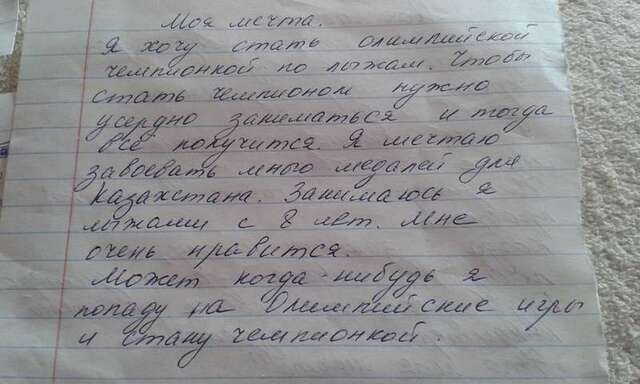 Моя мечта.
Я хочу стать олимпийской
чемпионкой по лыжам. Чтобы
стать чемпионом нужно
усердно заниматься и тогда
все получится. Я мечтаю
завоевать много медалей для
Казахстана. Занимаюсь я
лыжами с 8 лет. Мне
очень нравится.
Может когда-нибудь я
попаду на Олимпийские игры
и стану чемпионкой.